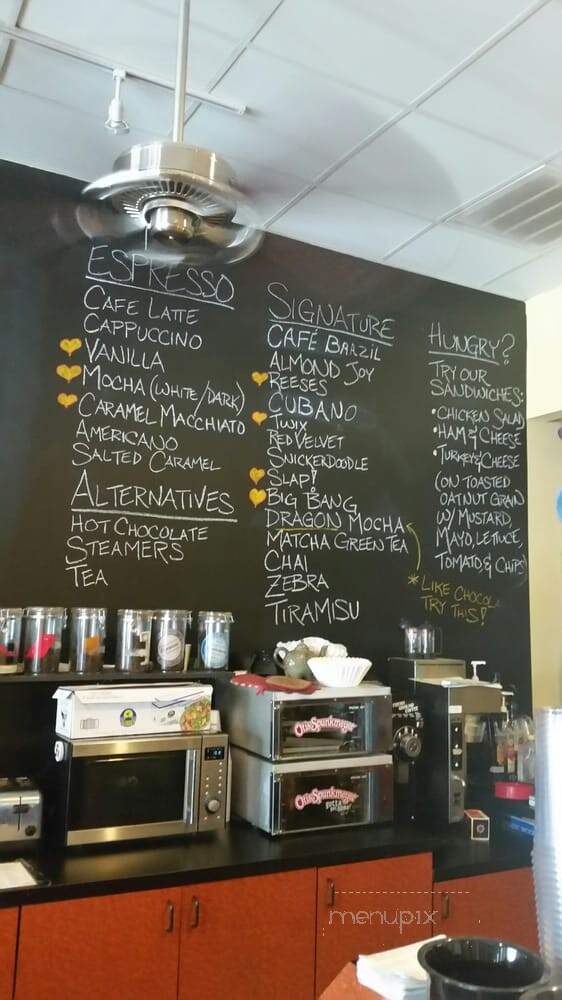 ESPRESSO
CAFE LATTE
CAPPUCCINO
VANILLA
MOCHA (WHITE/DARK)
CARAMEL MACCHIATO
AMERICANO
SALTED CARAMEL
ALTERNATIVES
HOT CHOCOLATE
STEAMERS
TEA
SIGNATURE
CAFÉ BRAZIL
ALMOND JOY
REESES
CUBANO
TWIX
RED VELVET
SNICKERDOODLE
SLAP!
BIG BANG
DRAGON MOCHA
MATCHA GREEN TEA
CHAI
ZEBRA
TIRAMISU
HUNGRY?
TRY OUR
SANDWICHES:
•CHICKEN SALAD
•HAM & CHEESE
•TURKEY & CHEESE
(ON TOASTED
OATNUT GRAIN
W/ MUSTARD,
MAYO, LETTUCE,
TOMATO & CHIPS)
* LIKE
TRY THIS!
Otis Spunkmeyer
Otis Spunkmeyer
menupix